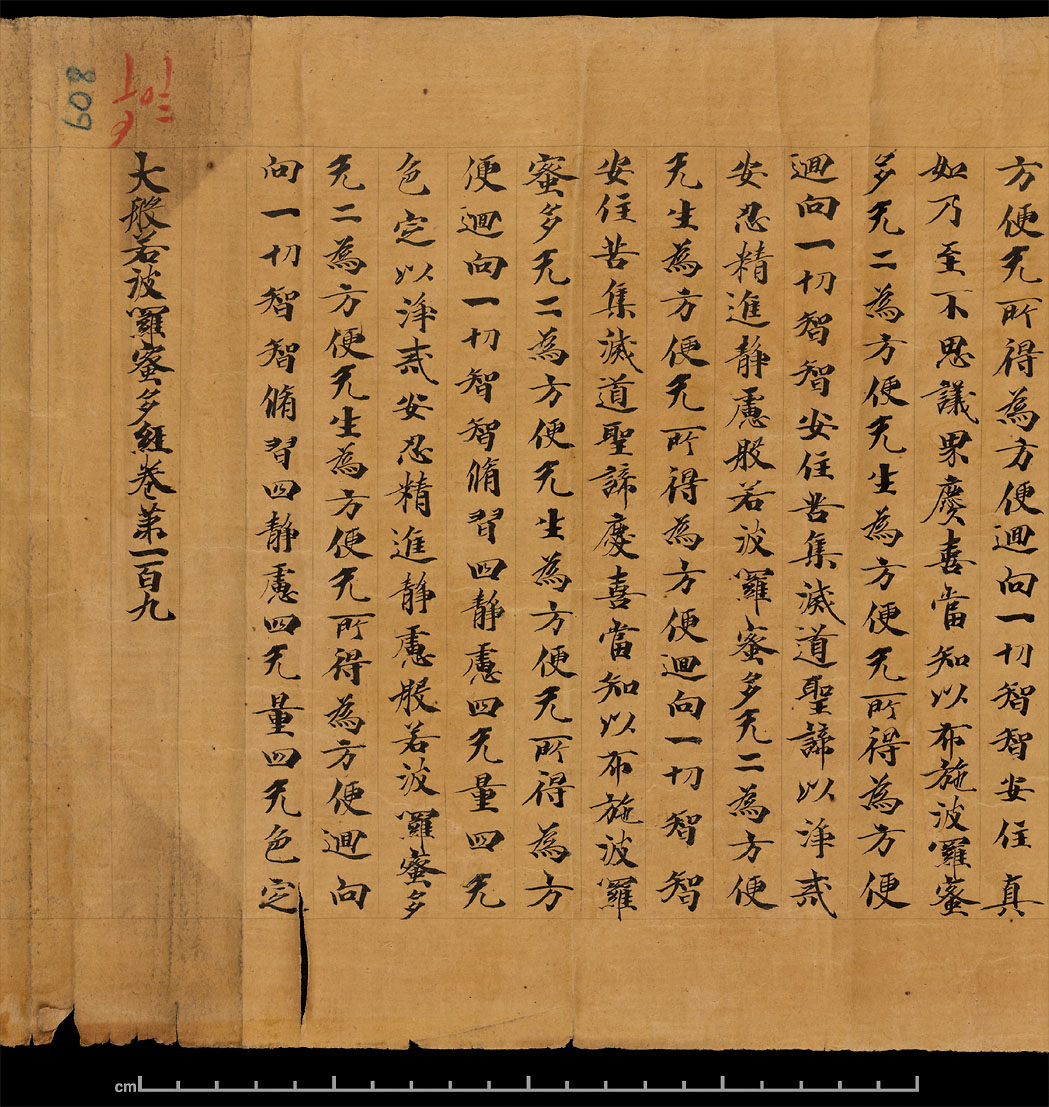 方便无所得為方便迴向一切智智安住真
如乃至不思議界慶喜當知以布施波羅蜜
多无二為方便无生為方便无所得為方便
迴向一切智智安住苦集滅道聖諦以淨戒
安忍精進靜慮般若波羅蜜多无二為方便
无生為方便无所得為方便迴向一切智智
安住苦集滅道聖諦慶喜當知以布施波羅
蜜多无二為方便无生為方便无所得為方
便迴向一切智智脩習四靜慮四无量四无
色定以淨戒安忍精進靜慮般若波羅蜜多
无二為方便无生為方便无所得為方便迴向
向一切智智脩習四靜慮四无量四无色定
大般若波羅蜜多經卷第一百九
608
cm